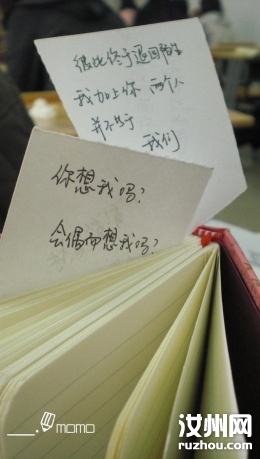 我加上你 两个人
并不等于
我们
你想我吗?
会偶而想我吗?
momo
汝州网
ruzhou.com